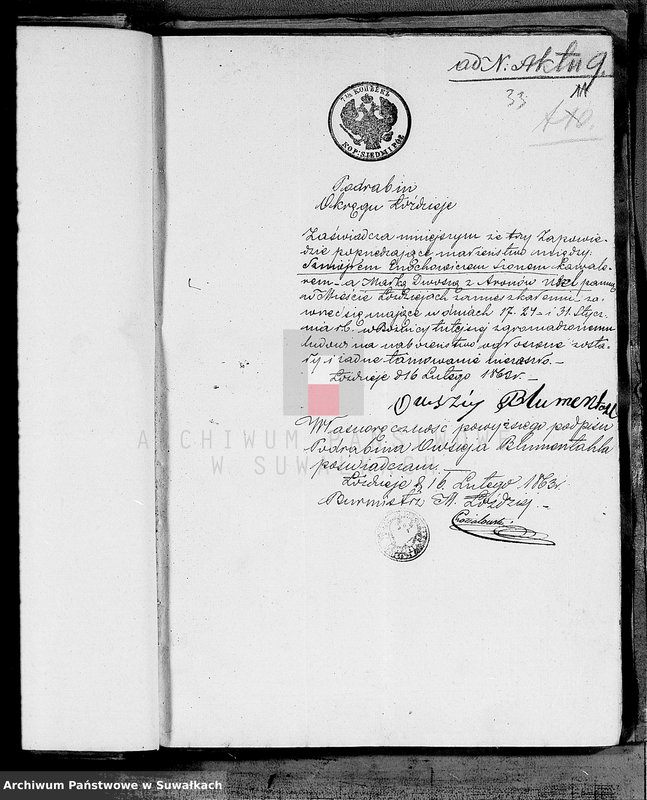 ad N. Aktu 9.
33
7½ КОПѢЕКЪ
KOP: SIEDM I PÓŁ
Podrabin
Okręgu Łoździeje
Zaświadcza niniejszym że trzy Zapowie-
dzie poprzedzające małżeństwo między:
Kawale-
rem a Marką Dwosią z Aronów panną
w Mieście Łoździejach zamieszkałemi za-
wrzeć się mające w dniach 17. 24 i 31. Stycz-
nia r b. w Bóżnicy tutejszej zgromadzonemu
ludowi na nabożeństwo ogłoszone zosta-
ły i żadne tamowanie nie zaszło.
Łoździeje d 16 Lutego 1863 r.
Blumenthal
Własnoręczność powyższego podpisu
Podrabina Owsieja Blumentahla
poświadczam.
Łoździeje d 16. Lutego 1863 r.
Burmistrz M. Łoździej
ARCHIWUM PAŃSTWOWE
W SUWAŁKACH
Archiwum Państwowe w Suwałkach